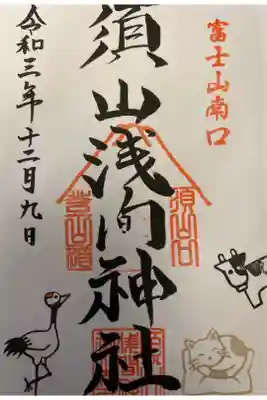 富士山南口
須山浅间神社
須山口
登山道
令和三年十二月九日